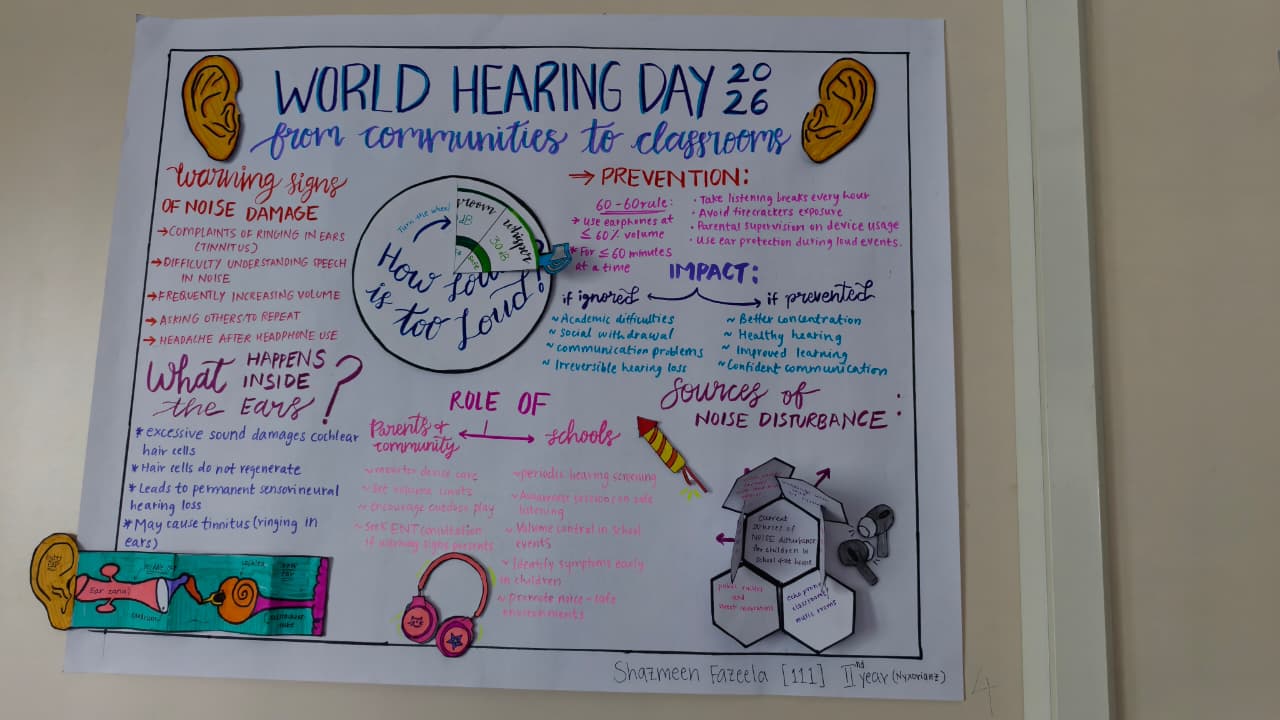 WORLD HEARING DAY 20
26
from communities to classrooms
Warning signs
OF NOISE DAMAGE
→ COMPLAINTS OF RINGING IN EARS
(TINNITUS)
→ DIFFICULTY UNDERSTANDING SPEECH
IN NOISE
→ FREQUENTLY INCREASING VOLUME
→ ASKING OTHERS TO REPEAT
→ HEADACHE AFTER HEADPHONE USE
Turn the wheel
whisper
30 dB
How loud
is too loud!
→ PREVENTION:
60-60 rule:
→ use earphones at
≤ 60% volume
* For ≤ 60 minutes
at a time
· Take listening breaks every hour
· Avoid firecrackers exposure
· Parental supervision on device usage
· Use ear protection during loud events.
IMPACT:
if ignored
~ Academic difficulties
~ social withdrawal
~ communication problems
~ Irreversible hearing loss
if prevented
~ Better concentration
~ Healthy hearing
~ Improved learning
~ Confident communication
What HAPPENS
INSIDE
the EARS ?
* excessive sound damages cochlear
hair cells
* Hair cells do not regenerate
* Leads to permanent sensorineural
hearing loss
* May cause tinnitus (ringing in
ears)
Ear canal
ROLE OF
Parents &
community
~ monitor device care
~ set volume limits
~ encourage outdoor play
~ Seek ENT consultation
if warning signs presents
schools
~ periodic hearing screening
~ Awareness session on safe
listening
~ Volume control in school
events
~ Identify symptoms early
in children
~ promote noise-safe
environments
Sources of
NOISE DISTURBANCE :
Current
sources of
NOISE disturbance
for children in
school & at home
public
and
classrooms/
music rooms
Shazmeen Fazeela [111] IInd year (Nyxorianz)
4